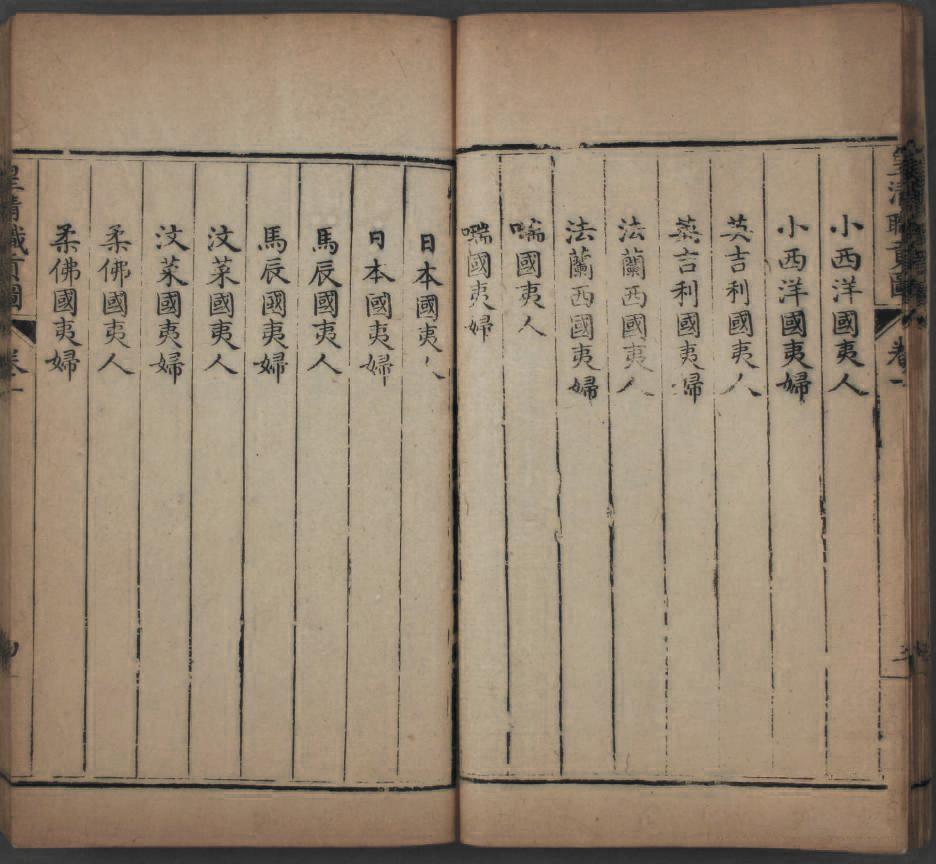 皇清職貢圖 卷一
小西洋國夷人
小西洋國夷婦
英吉利國夷人
英吉利國夷婦
法蘭西國夷人
法蘭西國夷婦
嘣國夷人
嘣國夷婦
日本國夷人
日本國夷婦
馬辰國夷人
馬辰國夷婦
汶萊國夷人
汶萊國夷婦
柔佛國夷人
柔佛國夷婦
皇清職貢圖 卷一